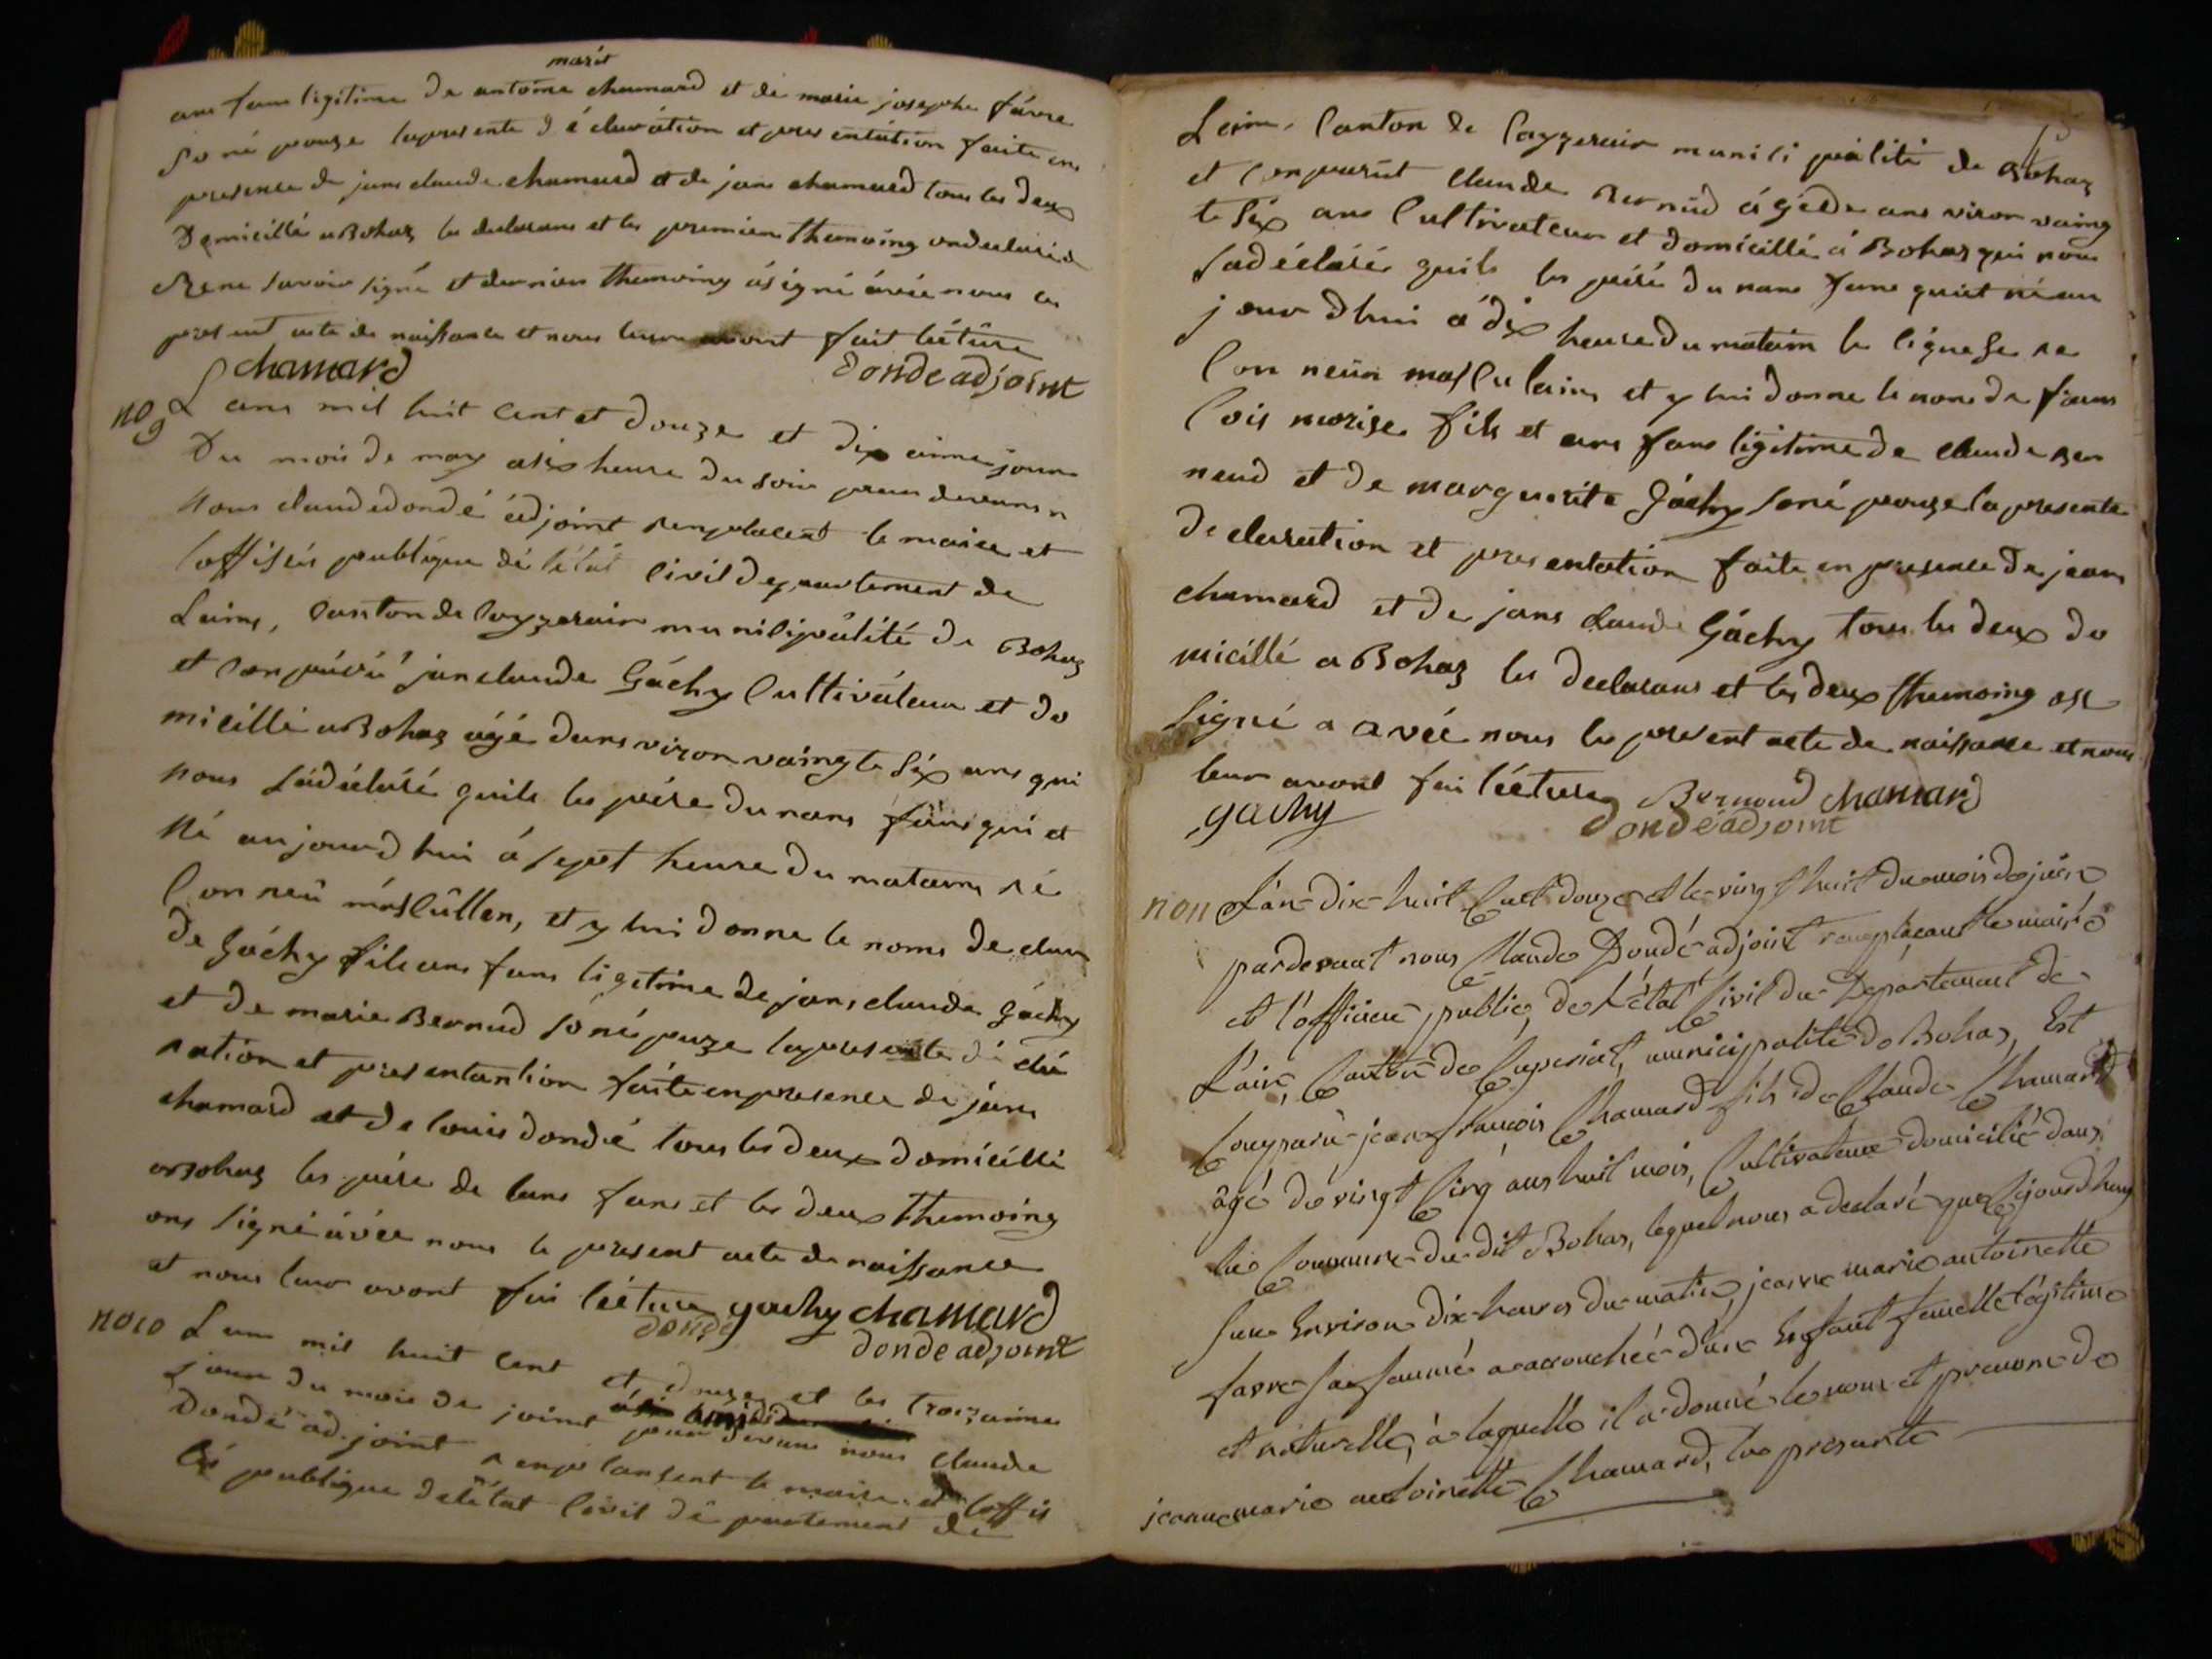 marit
ans fans ligitime de antoine chamard et de marie josephe fávre
so né pouze la presente d é claration et pres entation faite en
presence de jans claude chamard et de jans chamard tous les deux
Domicillé a Bohaz les declarans et les premier themoing
ne savoir signé et dernier themoing a signé avée nous
present acte de naissance et nous leur avont fait lécture
chamard donde adjoint
no 9 L ans mil huit cent et douze et dix jour
Du mois de may a six heure du soir
Nous claude dondé adjoint renplacent le maire et
l'offisié publique de létat civil departement de
Lains, canton de Cayzeriair municipálité de Bohaz
et conparú jan claude Gáchy Cultiváteur et do
micillé a Bohaz ágé dans viron vaingte six ans qui
nous la déclaré quils les pére du nans fans qui et
Né aujourd hui á sept heure du matains ré
Con neú masCullen, et y lui donne le nome de clau
de Gáchy fils ans fans ligitime de jans claude Gáchy
et de marie Bernud so né pouze la presente dé clá
ration et pres entantion faite en presence de jáns
chamard et de louis dondé tous les deux domicillé
a Bohaz les pére de lans fans et les deux themoing
ons signé ávée nous le present acte de naissance
et nous leur avont fai lécture gachy chamard
dondé donde adjoint
no 10 L ans mil huit cent et douze et les troizaime
jour du mois de joint par devans nous claude
Dondé ad joint renplansent le maire et l'offis
ié publique de létat civil dé partement de
Lains, Canton de Cayzeriair munisi pálité de Bohaz
et Conparut claude Bernúd ágé de ans viron vaing
te six ans Cultivateur et domicillé á Bohaz qui nous
la déclaré quils les péré du nans fans qui et né au
jour dhui á dix heure du matain le
Con neún masCulains et y lui donne le nom de frans
Cois morise fils et ans fans ligitime de claude Ber
neud et de marguerite Gáchy so né pouze la presente
De claration et pres entation faite en presence de jeans
chamard et de jans claude Gáchy tous les deux do
micillé a Bohaz les declarans et les deux themoing
signé a avée nous le present acte de naissance et nous
leur avont fai lécture Bernoud chamard
gachy donde adjoint
no 11 L'an dix-huit Cent douze et le vingt huit du mois de juin
pardevant nous Claude Dondé adjoint remplaçant le maire
et l'officier public, de l'état Civil du Département de
L'ain, Canton de Ceyseriat, municipalité de Bohas, Est
Comparù jean françois Chamard fils de Claude Chamard
âgé de vingt Cinq ans huit mois, Cultivateur domicilié dans
la Commune du dit Bohas, lequel nous a declaré que Cejourdhuy
Sur Environ dix heures du matin, jeanne marie antoinette
favre Sa femme a accouchée d'une Enfant femelle légitime
et naturelle, à laquelle il a donné le nom et prenom de
jeanne marie antoinette Chamard, la presente